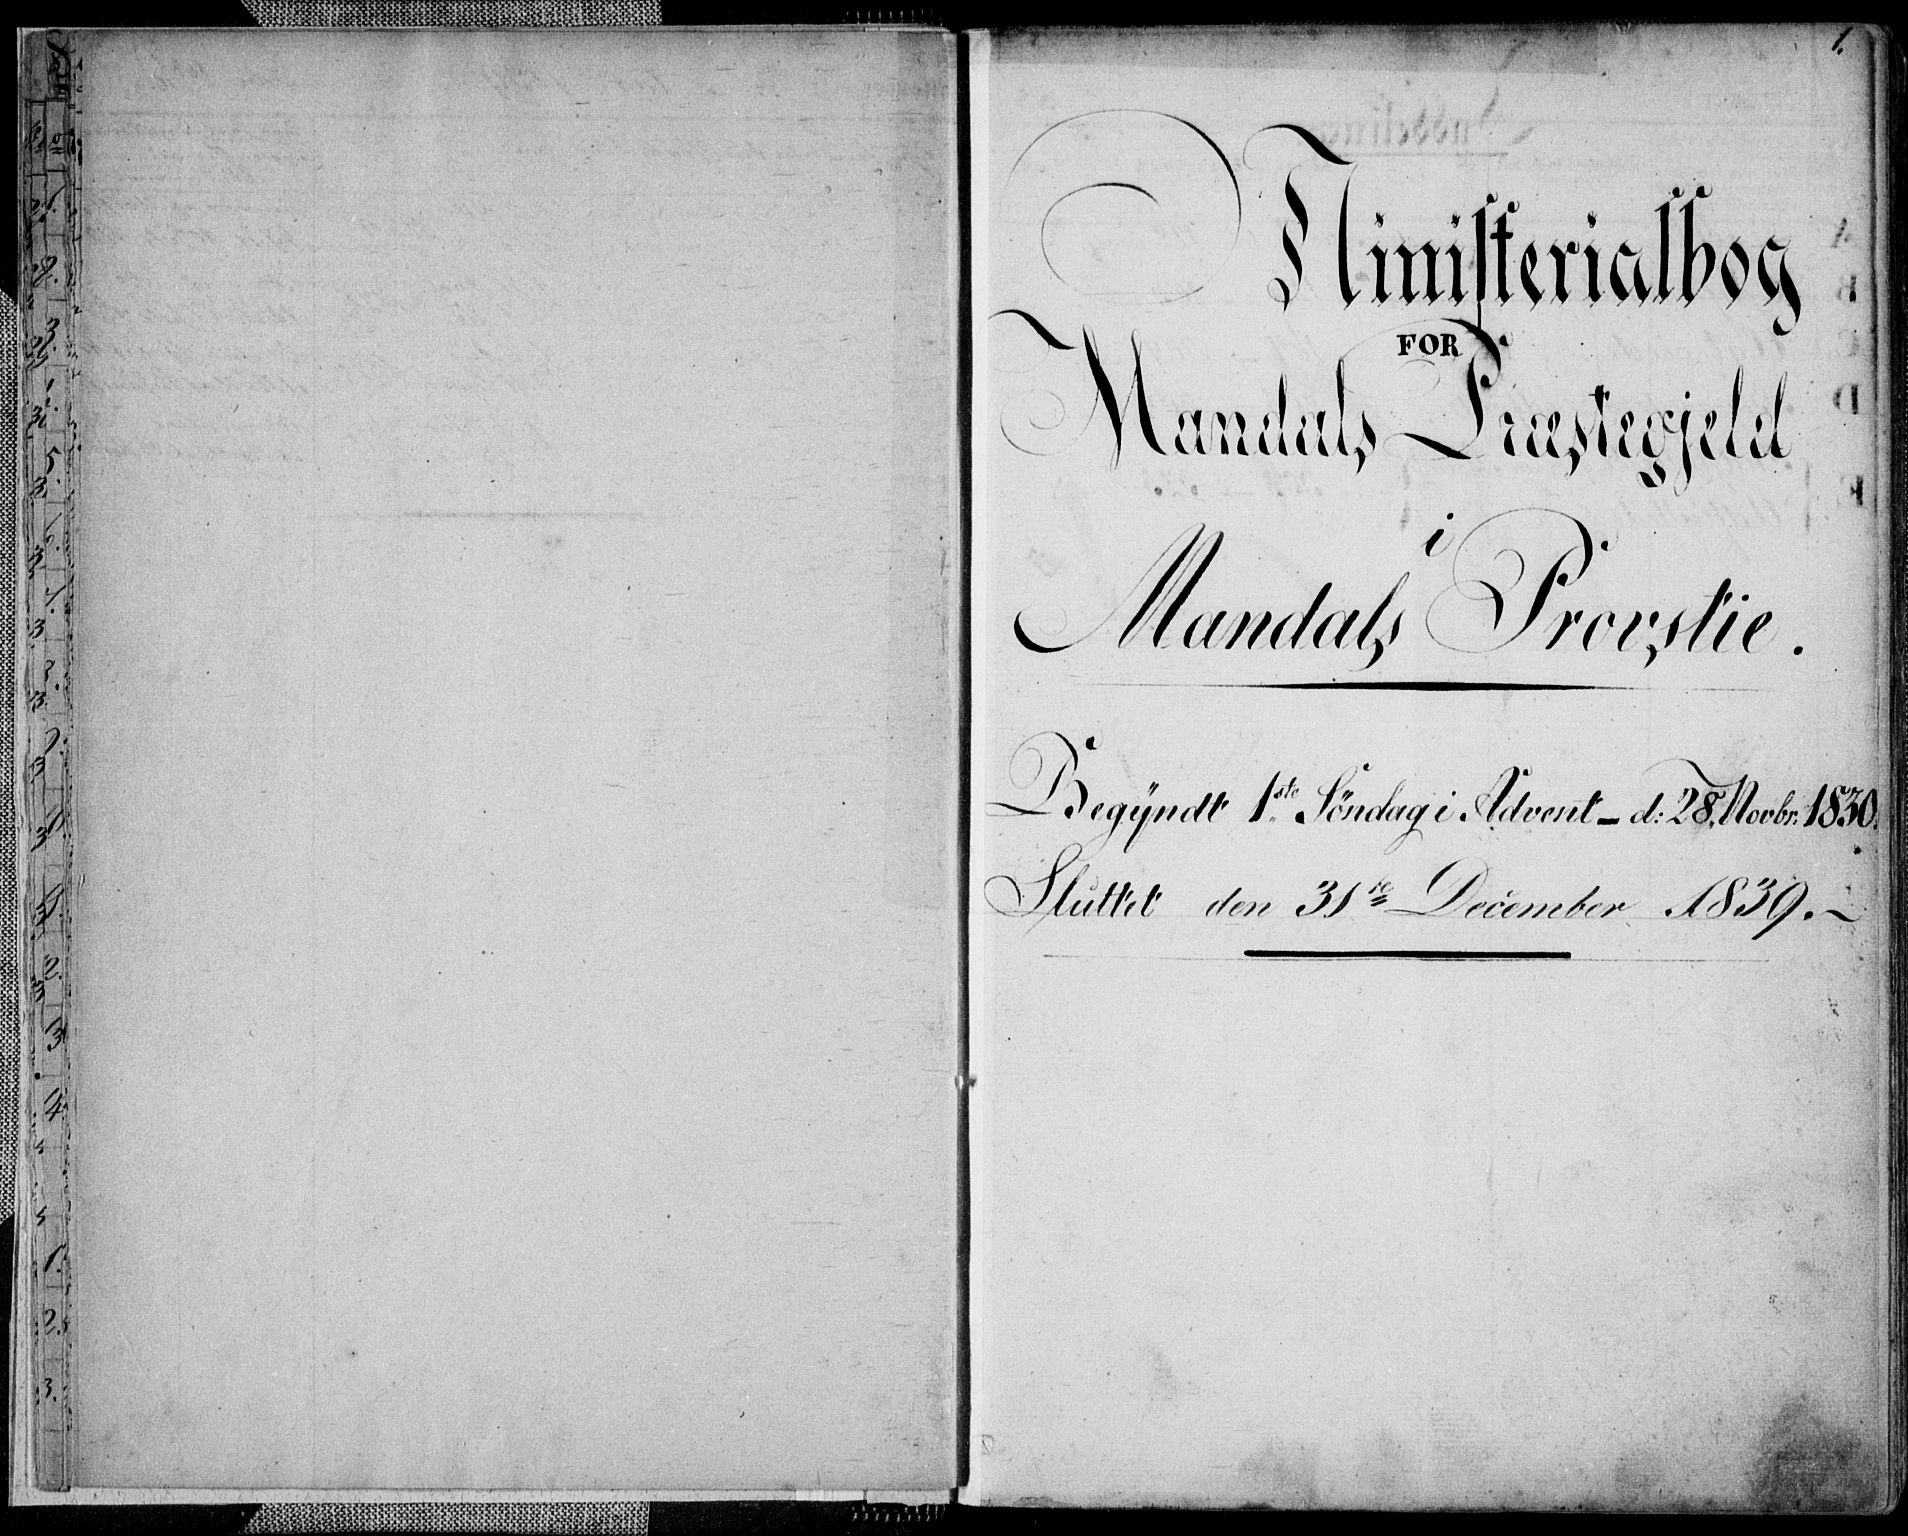 1.
Ministerialbog
FOR
Mandals Præstegjeld
i
Mandals Provstie.
Begÿndt 1ste Söndag i Advent – d: 28, Novbr. 1830.
Sluttet den 31te December 1839. –